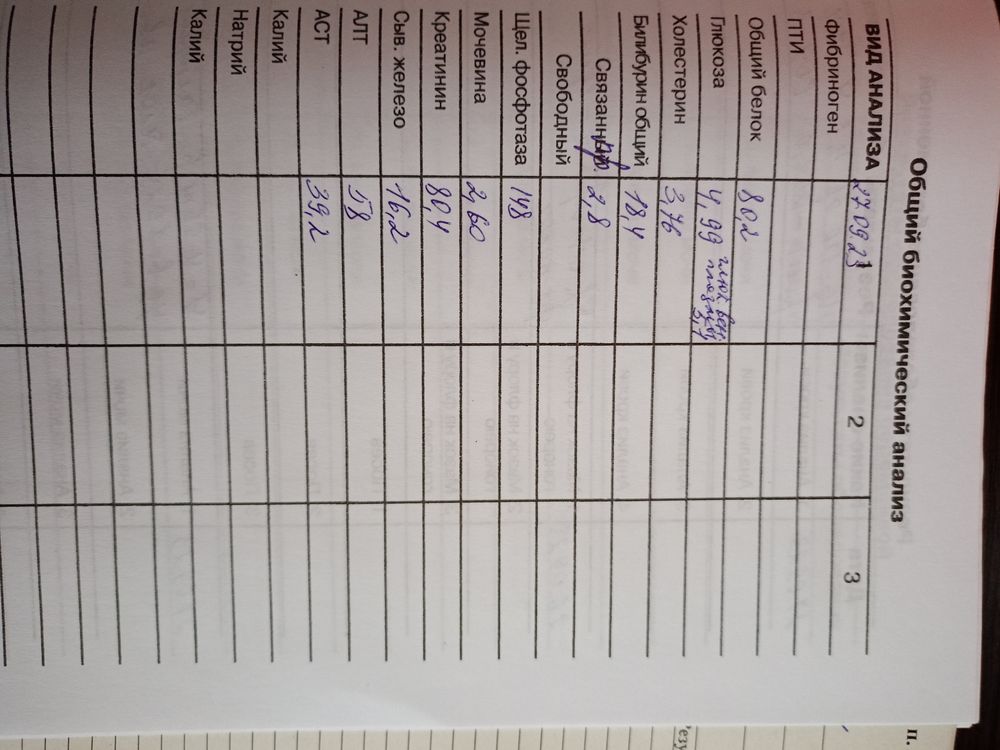 Общий биохимический анализ
ВИД АНАЛИЗА 27.09.23 1 2 3
Фибриноген
ПТИ
Общий белок 80,2
Глюкоза 4,99 глюк. вен. плазмы 3,7
Холестерин 3,76
Билибурин общий 18,4
Связанный пр. 2,8
Свободный
Щел. фосфотаза 148
Мочевина 2,60
Креатинин 80,4
Сыв. железо 16,2
АЛТ 58
АСТ 39,2
Калий
Натрий
Калий